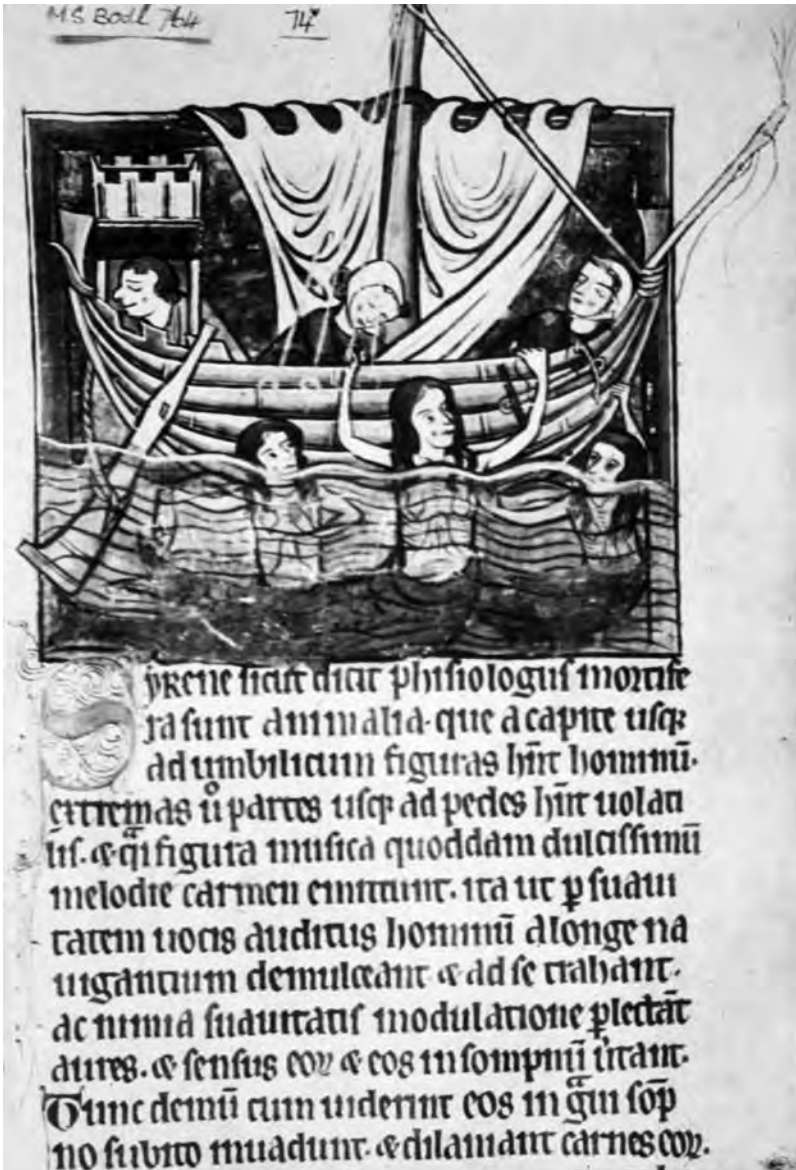 MS Bodl 764 74ᵛ
Syrene sicut dicit phisiologus mortife
ra sunt animalia. que a capite usqꝫ
ad umbilicum figuras hn̄t hominū.
extremas uͦ partes usqꝫ ad pedes hn̄t uolati
lis. & qͣi figura musica quoddam dulcissimū
melodie carmen emittunt. ita ut ꝑ suaui
tatem uocis auditus hominū a longe na
uigantium demulceant & ad se trahant.
ac nimia suauitatis modulatione ꝓlectāt
aures. & sensus eoꝝ & eos in sompnū uͥtant.
Tunc demū cum uiderint eos in gͣui sōp
no subito inuadunt. & dilaniant carnes eoꝝ.